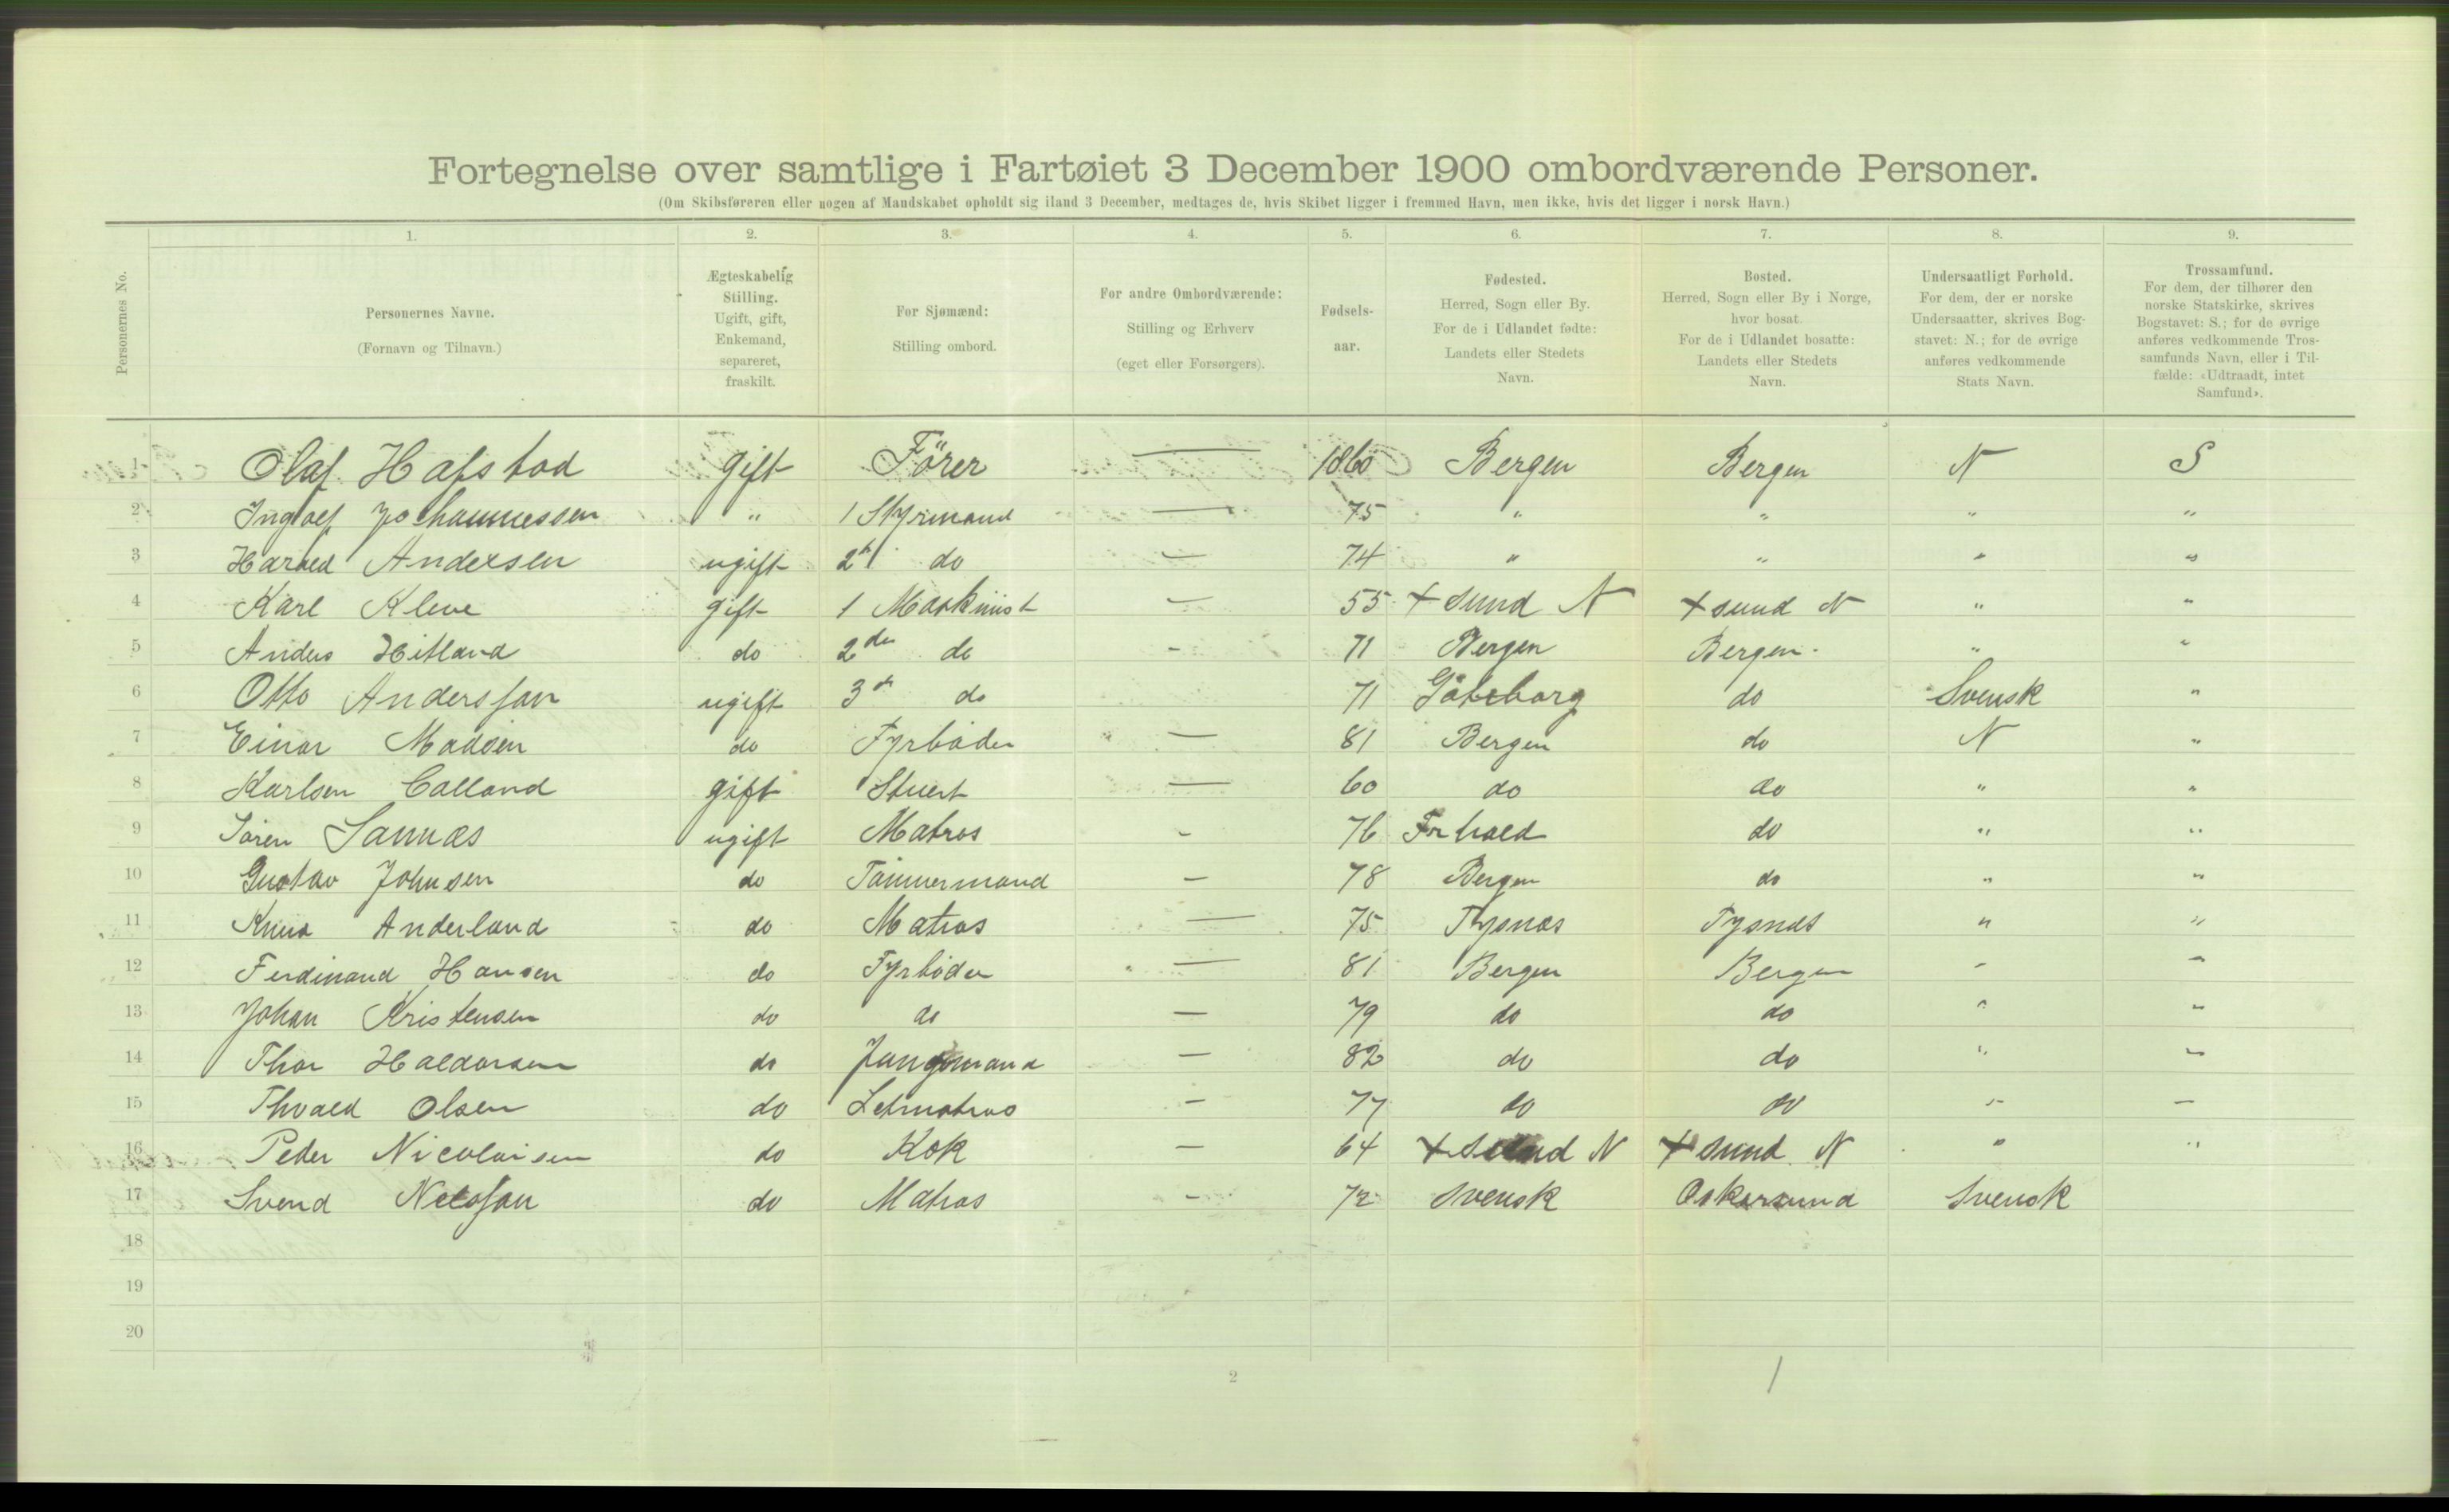 Fortegnelse over samtlige i Fartøiet 3 December 1900 ombordværende Personer.
(Om Skibsføreren eller nogen af Mandskabet opholdt sig iland 3 December, medtages de, hvis Skibet ligger i fremmed Havn, men ikke, hvis det ligger i norsk Havn.)
1. 2. 3. 4. 5. 6. 7. 8. 9.
Personernes No.
Personernes Navne.
(Fornavn og Tilnavn.)
Ægteskabelig
Stilling.
Ugift, gift,
Enkemand,
separeret,
fraskilt.
For Sjømænd:
Stilling ombord.
For andre Ombordværende:
Stilling og Erhverv
(eget eller Forsørgers).
Fødsels-
aar.
Fødested.
Herred, Sogn eller By.
For de i Udlandet fødte:
Landets eller Stedets
Navn.
Bosted.
Herred, Sogn eller By i Norge,
hvor bosat.
For de i Udlandet bosatte:
Landets eller Stedets
Navn.
Undersaatligt Forhold.
For dem, der er norske
Undersaatter, skrives Bog-
stavet: N.; for de øvrige
anføres vedkommende
Stats Navn.
Trossamfund.
For dem, der tilhører den
norske Statskirke, skrives
Bogstavet: S.; for de øvrige
anføres vedkommende Tros-
samfunds Navn, eller i Til-
fælde: «Udtraadt, intet
Samfund».
1 Olaf Hafstad gift Förer — 1860 Bergen Bergen N S
2 Ingolf Johannessen " 1 Styrmand — 75 " " " "
3 Harald Andersen ugift 2d do — 74 " " " "
4 Karl Kleve gift 1 Maskinist — 55 +sund N +sund N " "
5 Anders Hitland do 2den do - 71 Bergen Bergen. " "
6 Otto Andersson ugift 3d do 71 Göteborg do Svensk "
7 Einar Madsen do Fyrböder — 81 Bergen do N "
8 Karlsen Calland gift Stuert — 60 do do " "
9 Sören Sannæs ugift Matros - 76 do " "
10 Gustav Johnsen do Tömmermand — 78 Bergen do " "
11 Knud Anderland do Matros — 75 Tysnæs Tysnæs " "
12 Ferdinand Hansen do Fyrböder — 81 Bergen Bergen " "
13 Johan Kristensen do do — 79 do do " "
14 Thor Haldorsen do Jungmand — 82 do do " "
15 Thvald Olsen do Letmatros - 77 do do " —
16 Peder Nicolaisen do Kok — 64 +sund N +sund N " "
17 Svend Nelsson do Matros - 72 Svensk Oskarsund Svensk
18
19
20
2